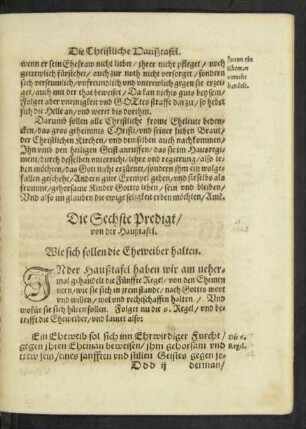 Die Christliche Haußtafel.
wenn er sein Ehefraw nicht liebet / jhrer nicht pfleget / noch
getrewlich fürsihet / auch zur noth nicht versorget / sondern
sich versäumlich / unfreundlich und untrewlich gegen sie erzei-
get / auch mit der that beweiset / Da kan nichts guts bey sein /
Folget aber uneinigkeit und GOttes straffe darzu / so hebet
sich die Hell an / und weret bis dorthin.
Wenn ein
Eheman
unrecht
handelt.
Darumb sollen alle Christliche frome Eheleute beden-
cken / das gros geheimnis Christi / und seiner lieben Braut /
der Christlichen Kirchen / und den selben auch nachkommen /
Ihn umb den heiligen Geist anruffen / das sie im Hausregi-
ment / durch desselben unterricht / lehre und regierung / also le-
ben möchten / das Gott nicht erzürnet / sondern jhm ein wolge-
fallen geschehe / Andern gute Exempel geben / und sie selbs als
fromme / gehorsame Kinder Gottes leben / sein und bleiben /
Und also im glauben die ewige seligkeit erben möchten / Amē.
Die Sechste Predigt /
von der Haußtafel.
Wie sich sollen die Eheweiber halten.
INder Haußtafel haben wir am neher-
mal gehandelt die Fünffte Regel / von den Ehemen-
nern / wie sie sich in jrem stande / nach Gottes wort
und willen / wol und rechtschaffen halten / Und
wofür sie sich hüten sollen. Folget nu die 6. Regel / und be-
trifft die Eheweiber / und lautet also:
Ein Eheweib sol sich inn Ehrwirdiger Furcht /
gegen jhren Eheman beweisen / jhm gehorsam und
trew sein / eines sanfften und stillen Geistes gegen je-
Die 6.
Regel.
Ddd ij
derman /